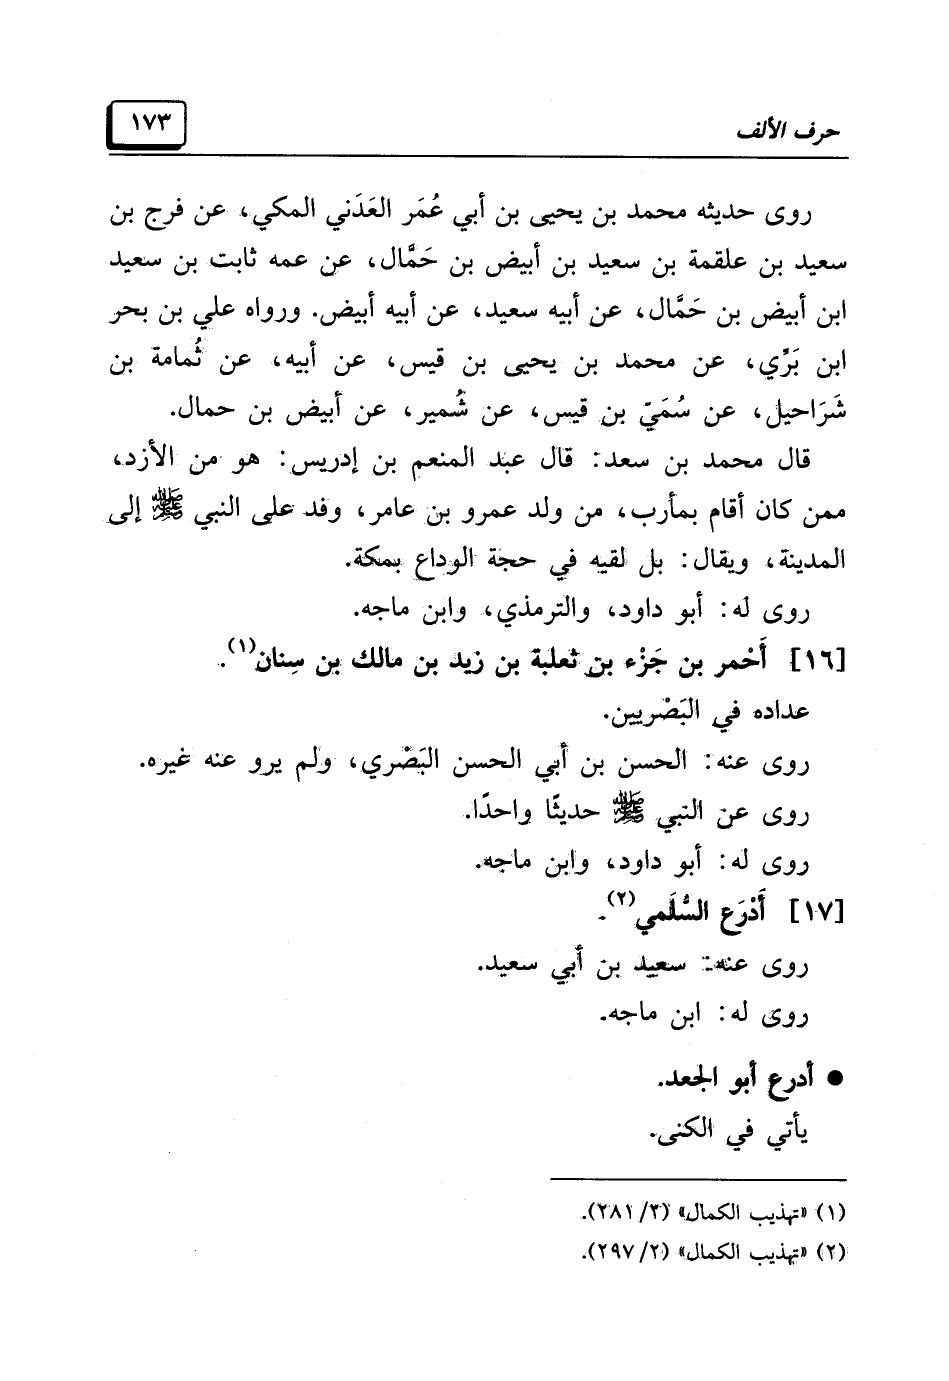 حرف الألف
١٧٣
روى حديثه محمد بن يحيى بن أبي عُمَر العَدَني المكي، عن فرج بن
سعيد بن علقمة بن سعيد بن أبيض بن حَمَّال، عن عمه ثابت بن سعيد
ابن أبيض بن حَمَّال، عن أبيه سعيد، عن أبيه أبيض. ورواه علي بن بحر
ابن بَرِّي، عن محمد بن يحيى بن قيس، عن أبيه، عن ثُمامة بن
شَرَاحيل، عن سُمَيّ بن قيس، عن شُمير، عن أبيض بن حمال.
قال محمد بن سعد: قال عبد المنعم بن إدريس: هو من الأزد،
ممن كان أقام بمأرب، من ولد عمرو بن عامر، وفد على النبي ﷺ إلى
المدينة، ويقال: بل لقيه في حجة الوداع بمكة.
روى له: أبو داود، والترمذي، وابن ماجه.
[١٦] أَحْمر بن جَزْء بن ثعلبة بن زيد بن مالك بن سِنان(١).
عداده في البَصْريين.
روى عنه: الحسن بن أبي الحسن البَصْري، ولم يرو عنه غيره.
روى عن النبي ﷺ حديثًا واحدًا.
روى له: أبو داود، وابن ماجه.
[١٧] أَدْرَع السُّلَمي(٢).
روى عنه: سعيد بن أبي سعيد.
روى له: ابن ماجه.
● أدرع أبو الجعد.
يأتي في الكنى.
(١) «تهذيب الكمال» (٢/ ٢٨١).
(٢) «تهذيب الكمال» (٢/ ٢٩٧).